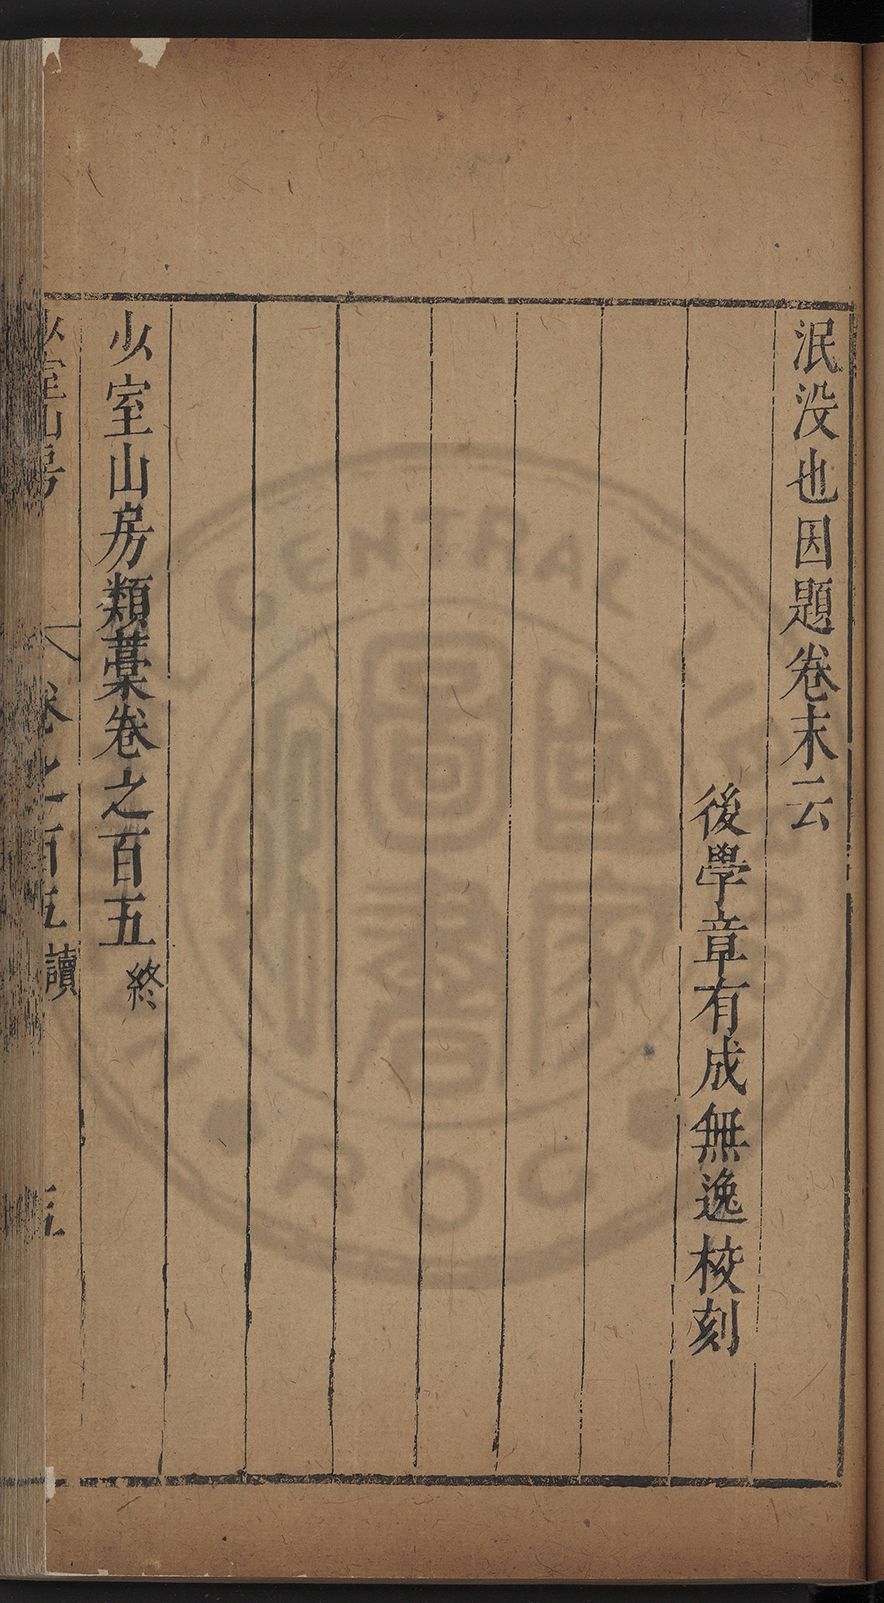 泯没也因題卷末云
後學章有成無逸校刻
少室山房類藁卷之百五終
少室山房 卷之百五 讀 五